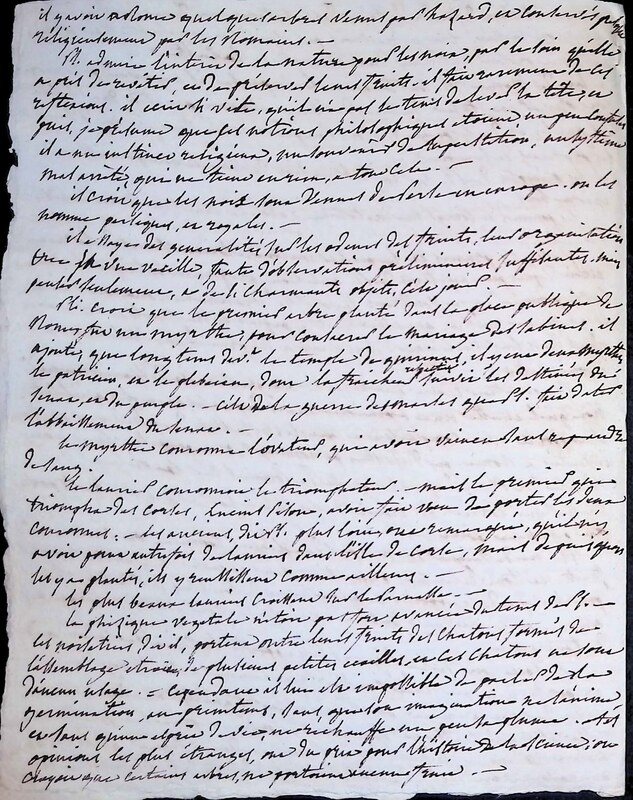 il y avoit à Rome quelques arbres venus par hazard, et conservés
religieusement par les Romains. —
Pl. admire l'intérêt de la nature pour les noix, par le soin qu'elle
a pris de revêtir, et de préserver leurs fruits. il fait rarement de ces
reflexions. il écrit si vite, qu'il n'a pas le tems de lever la tête, et
puis, je présume que ses notions philosophiques étoient un peu confuses
il a un instinct religieux, un souvenir de superstition, un système
mal arrêté, qui ne tient en rien, à tout cela. —
il croit que les noix sont venues de Perse en europe. on les
nomme persiques, et royales. —
il essaye des generalités sur les odeurs des fruits, leur organisation
vue vacille, faute d'observations préliminaires suffisantes, mais
parler seulement, de si charmants objets,
Pl. croit que le premier arbre planté dans la place publique de
Rome, fut un myrthe, pour consacrer le mariage des sabines. il
ajoute, que longtems dev.t le temple de quirinus, il y eut deux myrthes
le patricien, et le plebeien, dont la fraicheur suivit les destinées du
senat, et du peuple. — C'est de la guerre des marses que Pl. fait dater
l'abbaissement du senat. —
le myrthe couronne l'ovateur, qui avoit vaincu sans repandre
de sang.
le laurier couronnoit le triomphateur. — mais le premier qui
triompha des corses, Pison, avoit fait voeu de porter les deux
couronnes. — les anciens, dit Pl. plus loin, ont remarqué, qu'il n'y
avoit point autrefois de lauriers dans l'isle de corse, mais depuis qu'on
les y a plantés, ils y reussissent comme ailleurs. —
les plus beaux lauriers croissent sur le Parnasse. —
la phisique vegetale n'etoit pas fort avancée du tems de Pl. —
les noisetiers, dit-il, portent outre leurs fruits des chatons, formés de
l'assemblage étroit, de plusieurs petites écailles, et ces chatons ne sont
d'aucun usage. — Cependant il lui est impossible de parler de la
germination, au printems, sans que son imagination ne s'anime
et sans qu'une espèce de vie, ne réchauffe un peu sa plume. —
opinions les plus étranges, ont du prix pour l'histoire de la science; on
croyoit que certains arbres, ne portoient aucun fruit. —